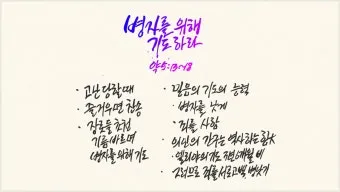 병자를 위해
기도하라
약5:13~18
· 고난당할때
· 즐거우면 찬송
· 장로들 초청
기름바르며
병자를 위해 기도
· 믿음의 기도의 능력
· 병자를 낫게
· 죄를 사함
· 의인의 간구는 역사하는 힘
· 엘리야의 기도 3년 6개월 비
· 그러므로 죄를 서로 고백, 병낫기